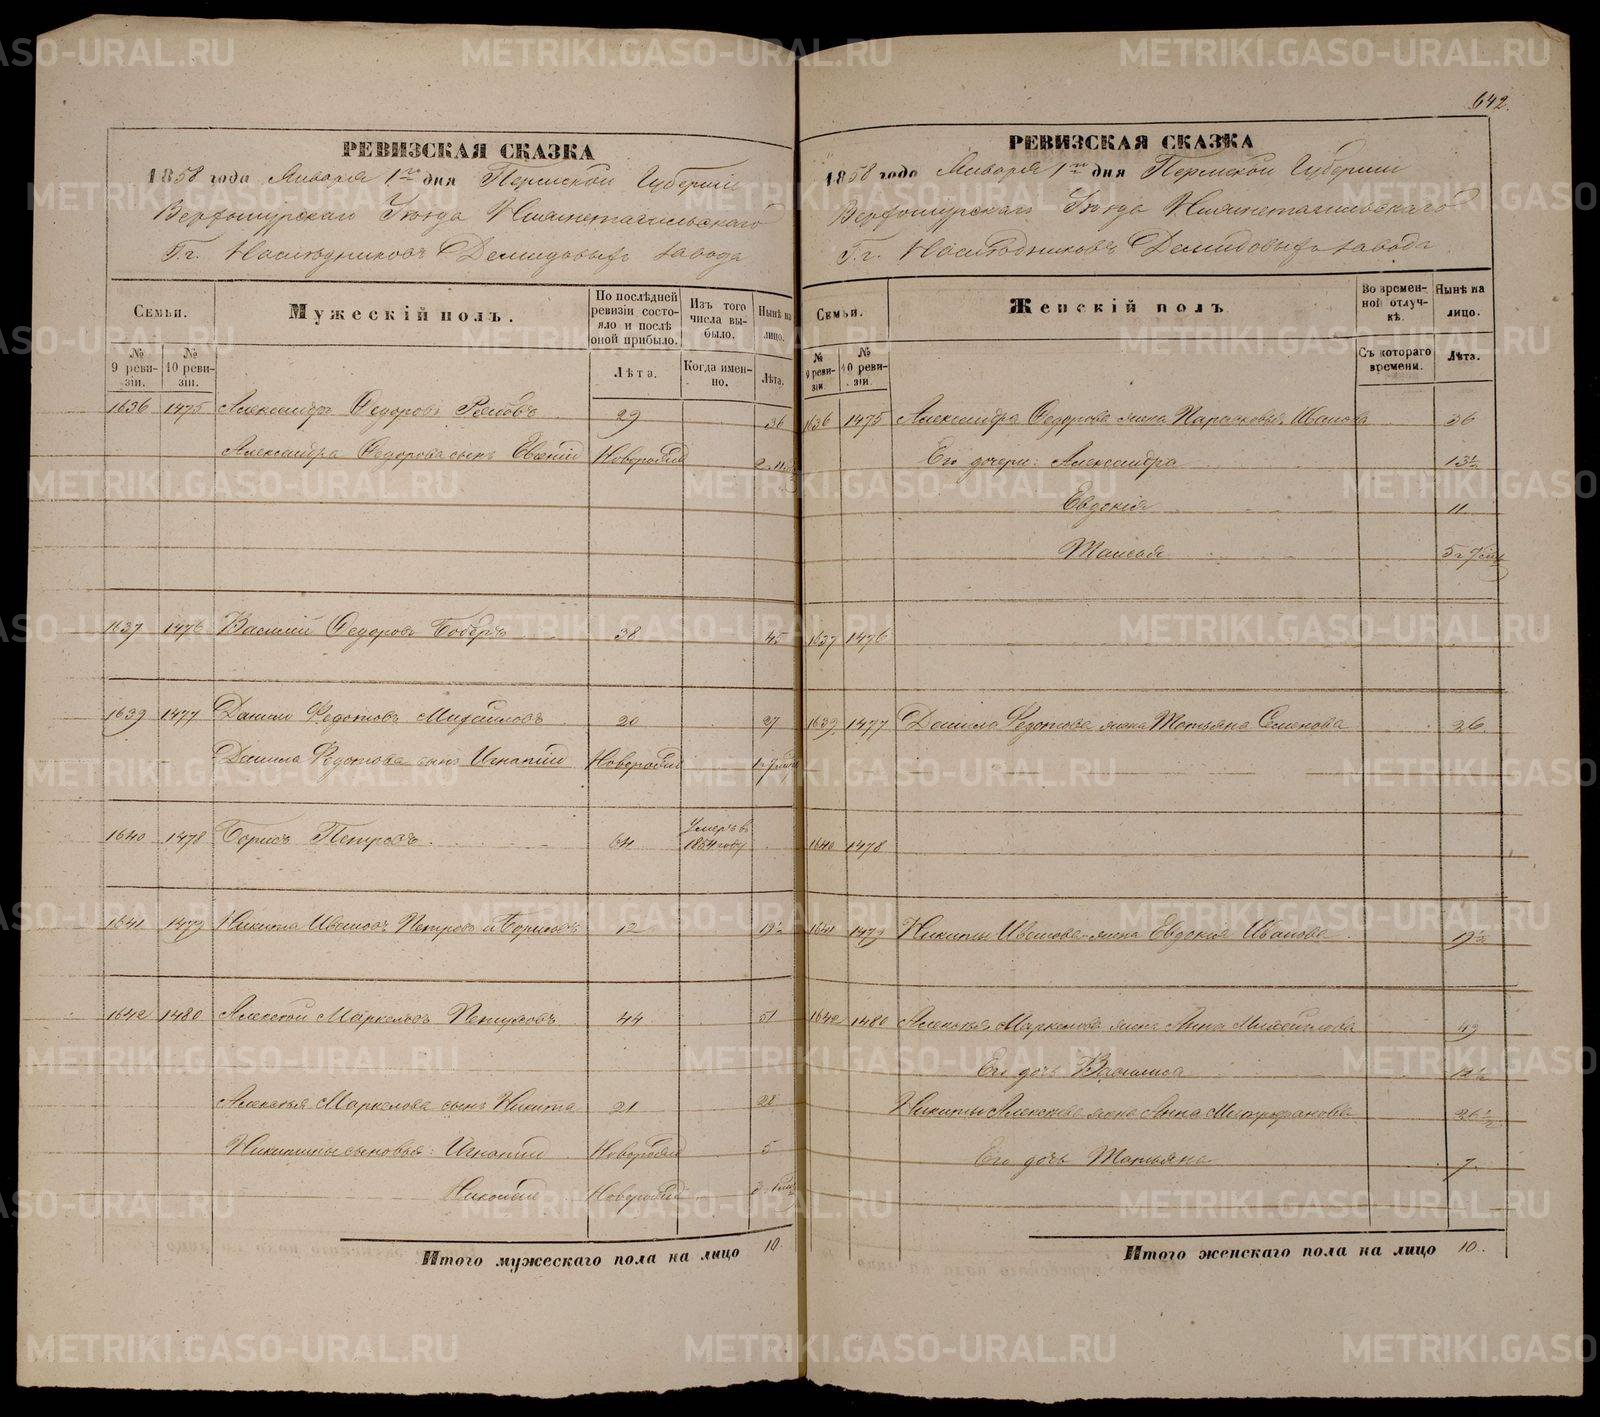 642.
РЕВИЗСКАЯ СКАЗКА
1858 года Января 1го дня Пермской Губерніи
Верхотурскаго Уѣзда Нижнетагильскаго
Г.г. Наслѣдниковъ Демидовыхъ завода
Семьи.
Мужескій полъ.
По послѣдней ревизіи состояло и послѣ оной прибыло.
Изъ того числа выбыло.
Нынѣ на лицо.
№ 9 ревизіи.
№ 10 ревизіи.
Лѣта.
Когда именно.
Лѣта.
1636 1475 Александръ Федоровъ 29 36
Александра Федорова сынъ Новорожд
1637 1476 Василій Федоровъ 38 45
1639 1477 Данило Федотовъ Михайловъ 20 27
Данила Федотова сынъ Игнатій Новорожд
1640 1478 Борисъ Петровъ 64 Умеръ въ 1854 году
1641 1479 Никита Ивановъ Петровъ и Борисовъ 12 19½
1642 1480 Алексѣй Маркеловъ 44 51
Алексѣя Маркелова сынъ Никита 21 28
Никитины сыновья: Игнатій Новорожд 5
Николай Новорожд
Итого мужескаго пола на лицо 10.
РЕВИЗСКАЯ СКАЗКА
1858 года Января 1го дня Пермской Губерніи
Верхотурскаго Уѣзда Нижнетагильскаго
Г.г. Наслѣдниковъ Демидовыхъ завода
Семьи.
Женскій полъ
Во временной отлучкѣ.
Нынѣ на лицо.
№ 9 ревизіи
№ 10 ревизіи
Съ котораго времени.
Лѣта.
1636 1475 Александра Федорова жена Парасковья Иванова 36
Его дочери: Александра 13½
Евдокія 11
1637 1476
1639 1477 Данила Федотова жена Татьяна Семенова 26
1640 1478
1641 1479 Никиты Иванова жена Евдокія Иванова 19½
1642 1480 Алексѣя Маркелова жена Анна Михайлова 49
Его дочь Василиса
Никиты Алексѣева жена Анна Митрофанова 26½
Его дочь Татьяна 7
Итого женскаго пола на лицо 10.
METRIKI.GASO-URAL.RU